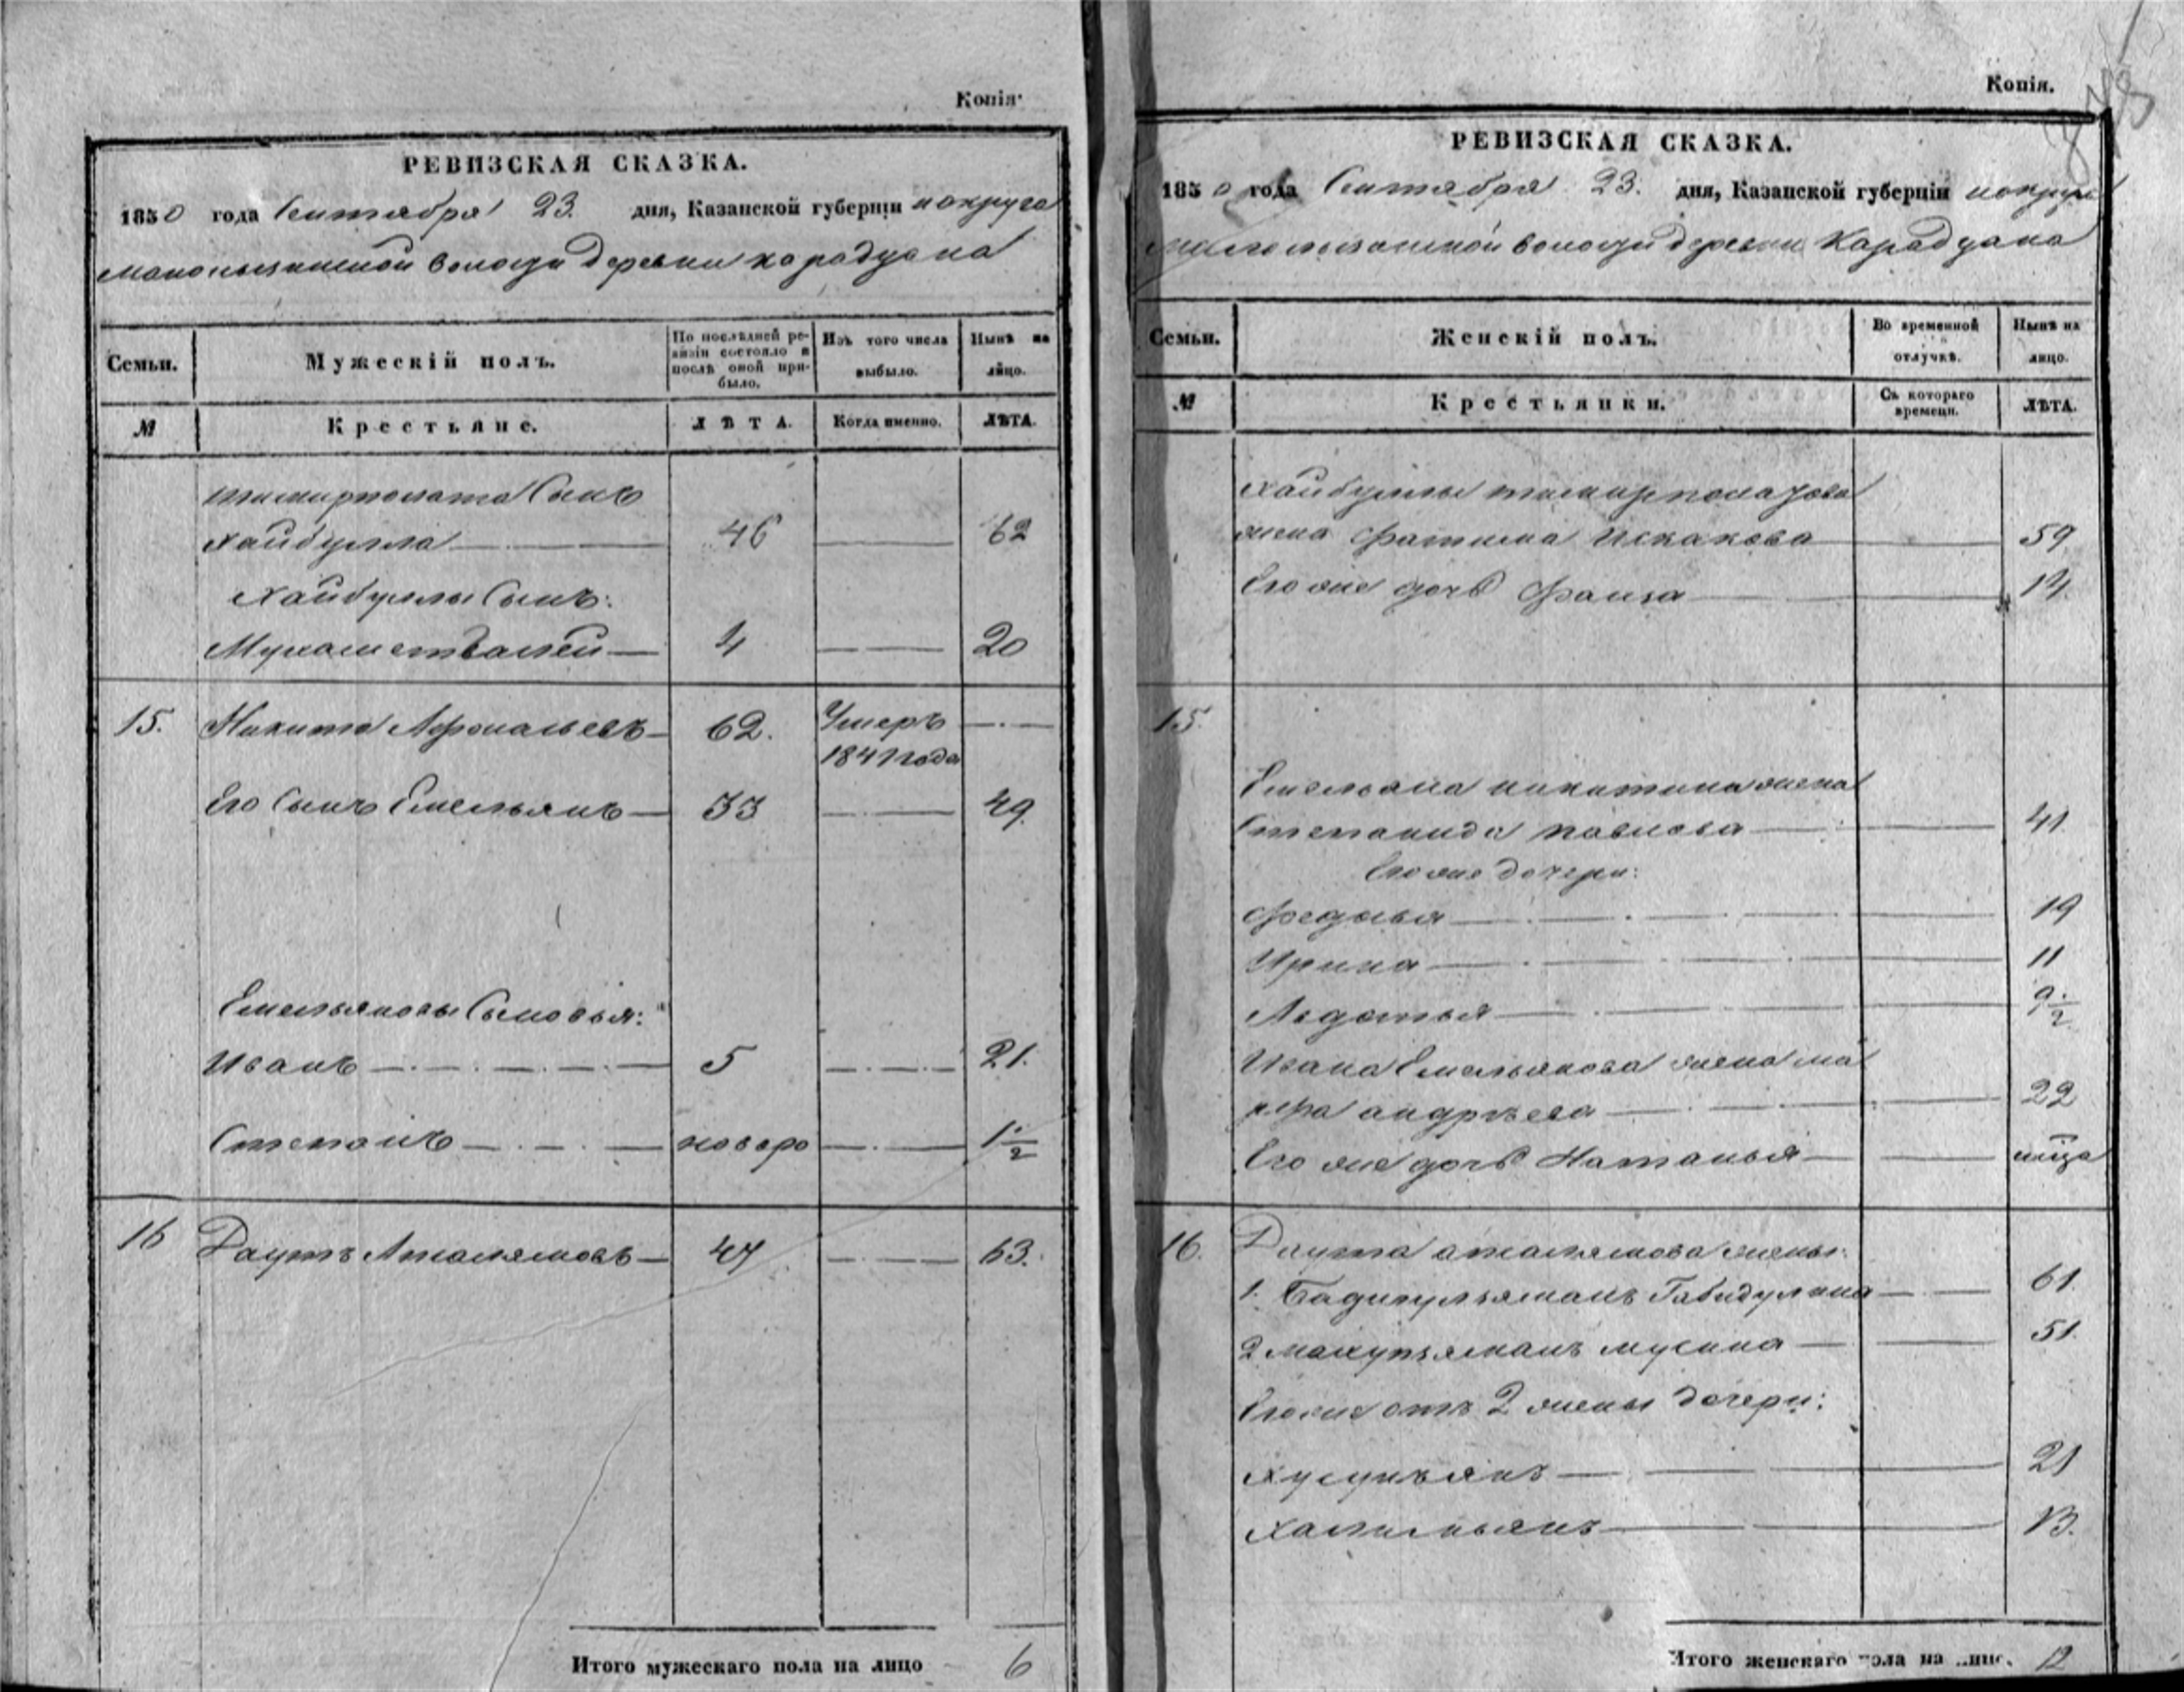 Копія.
РЕВИЗСКАЯ СКАЗКА.
1850 года Сентября 23. дня, Казанской губерніи
волости деревни карадуана
Семьи.
Мужескій полъ.
По послѣдней ревизіи состояло и послѣ оной прибыло.
Изъ того числа выбыло.
Нынѣ на лицо.
№
Крестьяне.
ЛѢТА.
Когда именно.
ЛѢТА.
тимирполата Сынъ
хайбулла 46 62
хайбуллы Сынъ:
Мухаметвалей 4 20
15. Никита Афонасьевъ 62. Умеръ
1841 года
Его Сынъ Емельянъ 33 49.
Емельяновы Сыновья:
Иванъ 5 21.
Степанъ новоро 1 1/2
16 Даутъ 47 63.
Итого мужескаго пола на лицо 6
Копія.
РЕВИЗСКАЯ СКАЗКА.
1850 года Сентября 23. дня, Казанской губерніи
волости деревни Карадуана
Семьи.
Женскій полъ.
Во временной отлучкѣ.
Нынѣ на лицо.
№
Крестьянки.
Съ котораго времени.
ЛѢТА.
хайбуллы тимирполатова
жена фатима Искакова 59
Его же дочь Фаиза 14
15.
Емельяна никитина жена
Степанида павлова 41
Его же дочери:
Федосья 19
Ирина 11
Авдотья 9 1/2
Ивана Емельянова жена ма
андрѣева 22
Его же дочь Наталья
16. Даута жены:
1. Габидулина 61.
2 мусина 51.
Его же отъ 2 жены дочери:
21
13.
Итого женскаго пола на лицо. 12